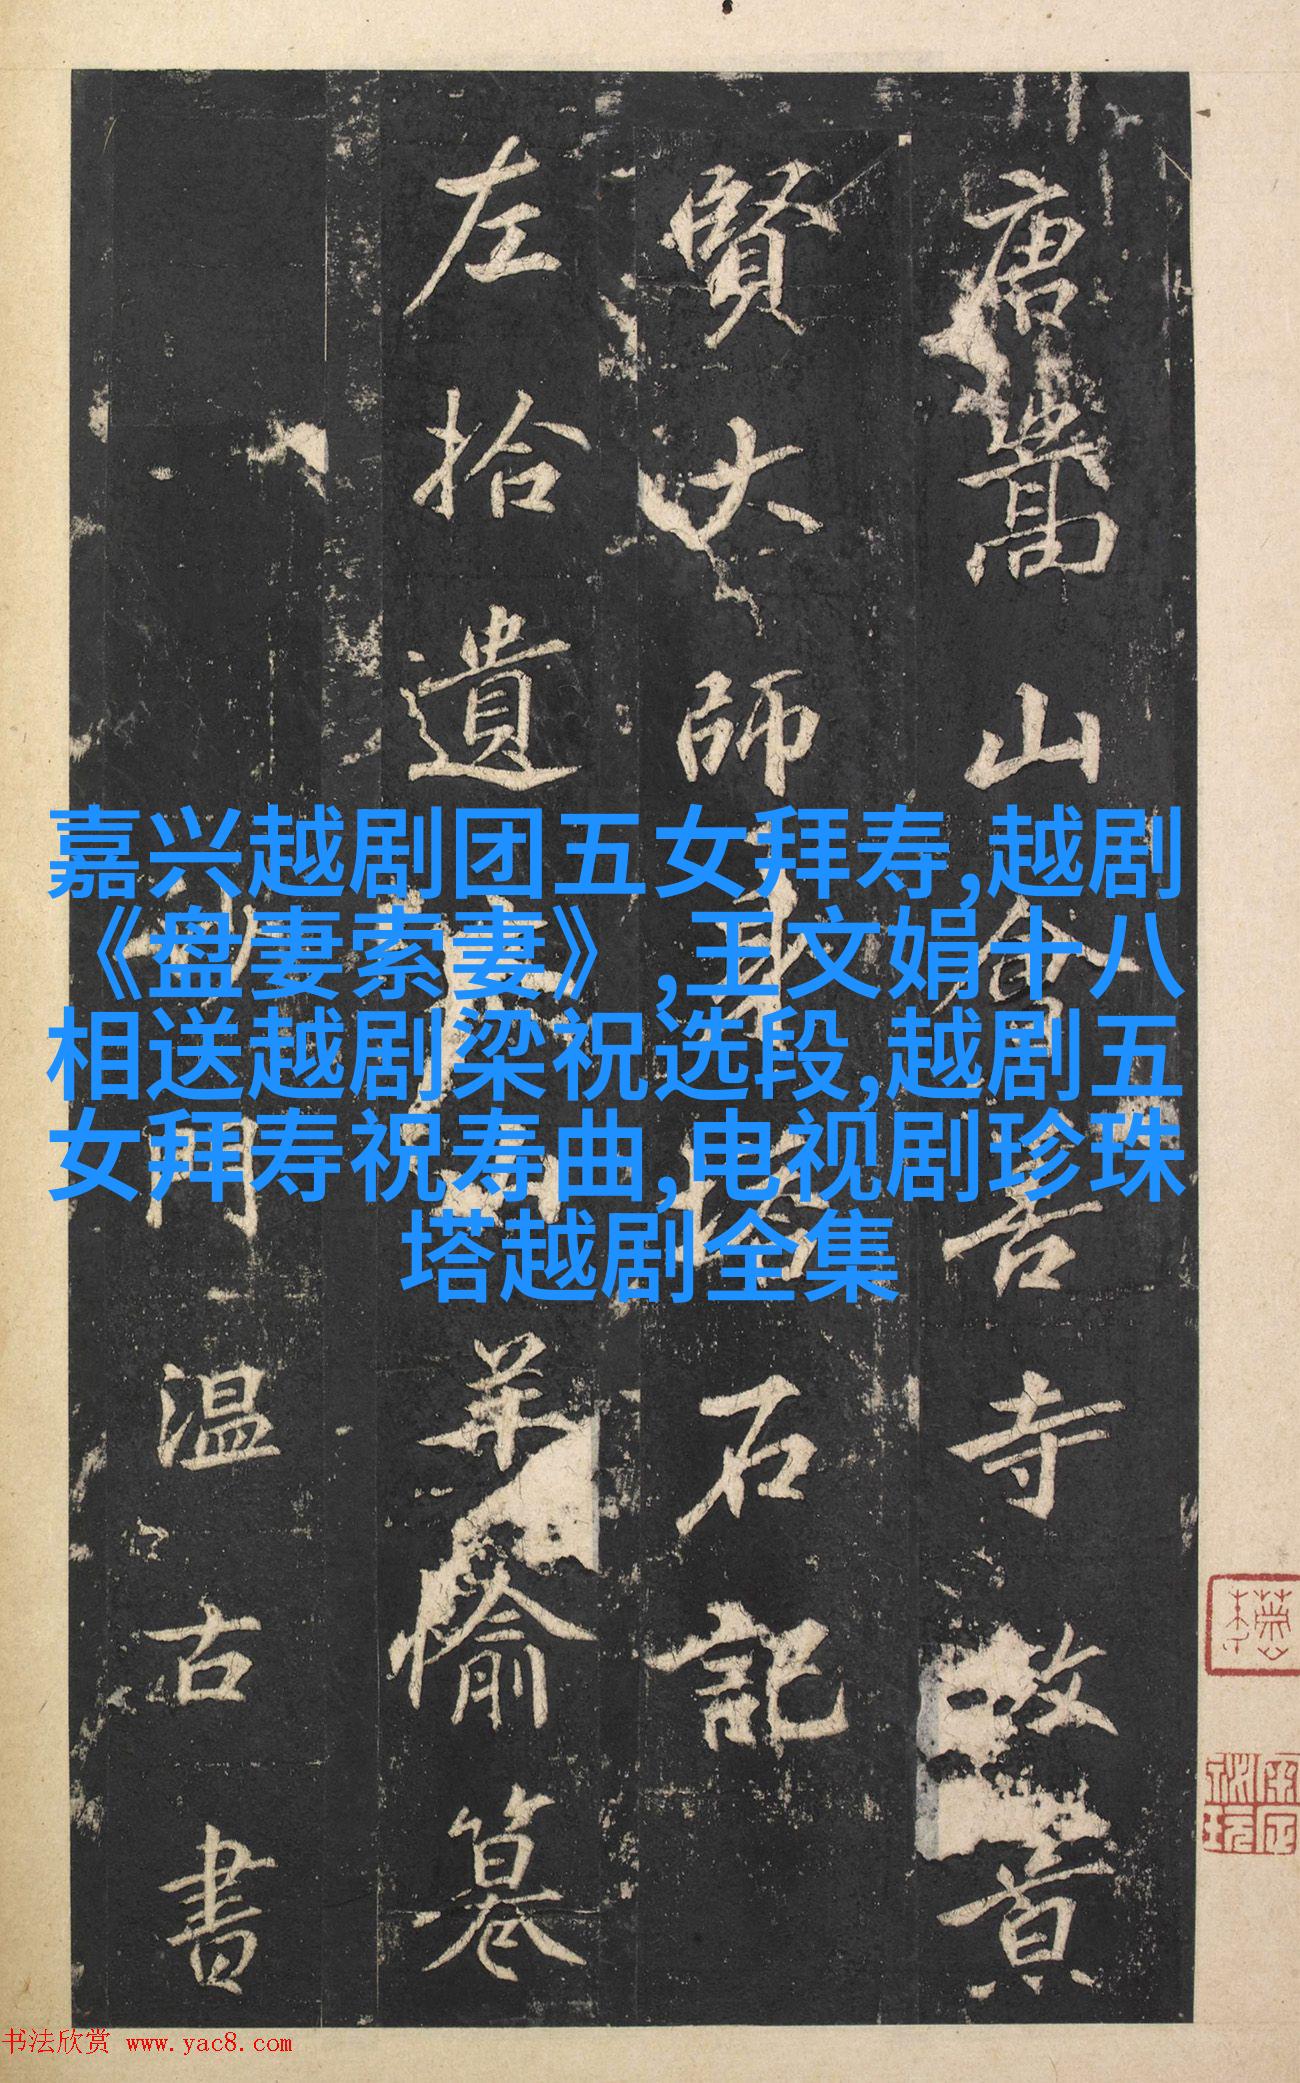 唐嵩山會善寺故景
賢大師身塔石記
左拾遺山羊愉纂
沙門温古書
嘉兴越剧团五女拜寿,越剧
《盘妻索妻》,王文娟十八
相送越剧梁祝选段,越剧五
女拜寿祝寿曲,电视剧珍珠
塔越剧全集
书法欣赏 www.yac8.com